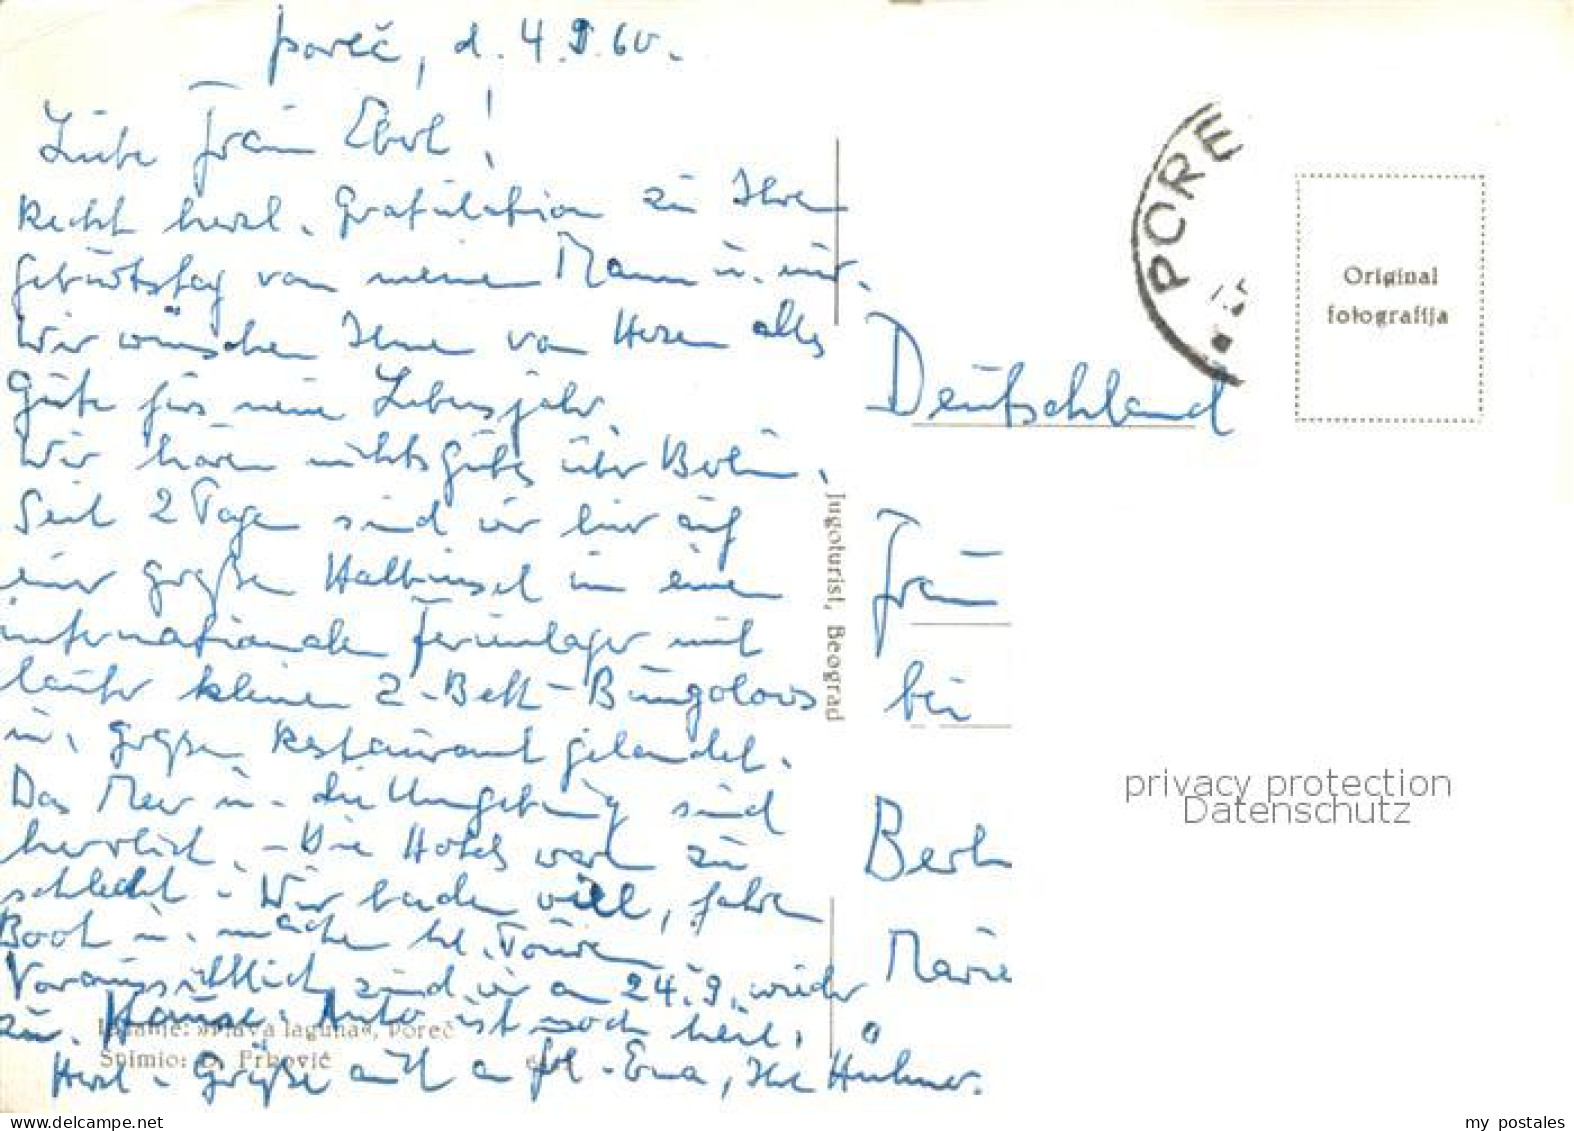 Poreč, d. 4.9.60.
Liebe Frau Eberl!
Recht herzl. Gratulation zu Ihrem
Geburtstag von meinem Mann u. mir.
Wir wünschen Ihnen von Herzen alles
Gute fürs neue Lebensjahr.
Wir hören nichts Gutes über Berlin.
Seit 2 Tagen sind wir hier auf
einer großen Halbinsel in einem
internationalen Ferienlager mit
lauter kleinen 2-Bett-Bungolows
u. großem Restaurant gelandet.
Das Meer u. die Umgebung sind
herrlich. - Die Hotels waren zu
schlecht - Wir baden viel, fahren
Boot u. machen kl. Touren.
Voraussichtlich sind wir am 24.9. wieder
zu Hause. Auto ist noch heil.
Herzl. Grüße auch an Frl. Erna, Ihre Hühner.
Izdanje: »Plava laguna«, Poreč
Snimio:
Jugoturist, Beograd
PORE
Original
fotografija
Deutschland
Frau
bei
Berlin
Marie
privacy protection
Datenschutz
my postales.com
my postales